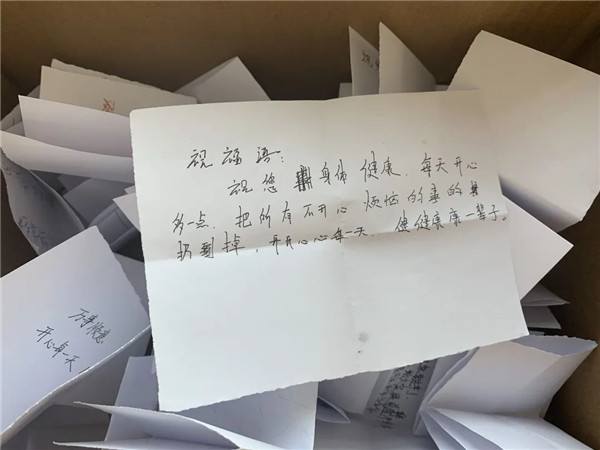 祝福语：
祝您身体健康，每天开心
多一点，把所有不开心烦恼的事的
扔到掉，开开心心每一天，健健康康一辈子。
万事顺意
开心每一天